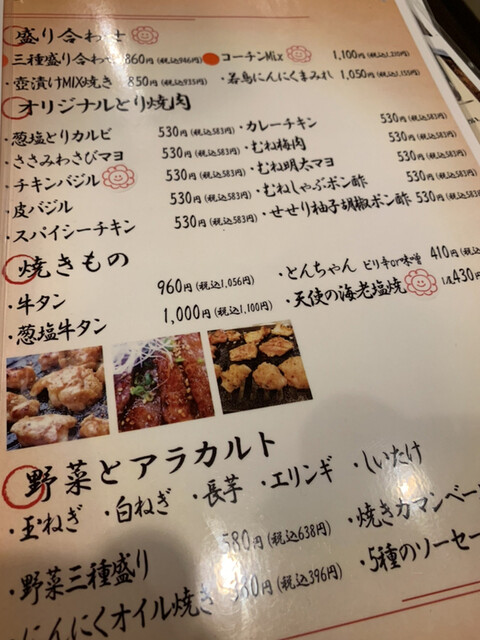 盛り合わせ
三種盛り合わせ 860円(税込946円)
コーチンMix 1,100円(税込1,210円)
壺漬けMIX焼き 850円(税込935円)
若鳥にんにくまみれ 1,050円(税込1,155円)
オリジナルとり焼肉
葱塩とりカルビ 530円(税込583円)
・カレーチキン 530円(税込583円)
・ささみわさびマヨ 530円(税込583円)
・むね梅肉 530円(税込583円)
・チキンバジル 530円(税込583円)
・むね明太マヨ 530円(税込583円)
・皮バジル 530円(税込583円)
・むねしゃぶポン酢 530円(税込583円)
・スパイシーチキン 530円(税込583円)
・せせり柚子胡椒ポン酢 530円(税込583円)
焼きもの
・牛タン 960円(税込1,056円)
・とんちゃん ピリ辛or味噌 410円(税込
・葱塩牛タン 1,000円(税込1,100円)
・天使の海老塩焼 430円(税
野菜とアラカルト
・玉ねぎ ・白ねぎ ・長芋 ・エリンギ ・しいたけ
580円(税込638円)
・野菜三種盛り
・焼きカマンベー
にんにくオイル焼き 360円(税込396円)
・5種のソーセー